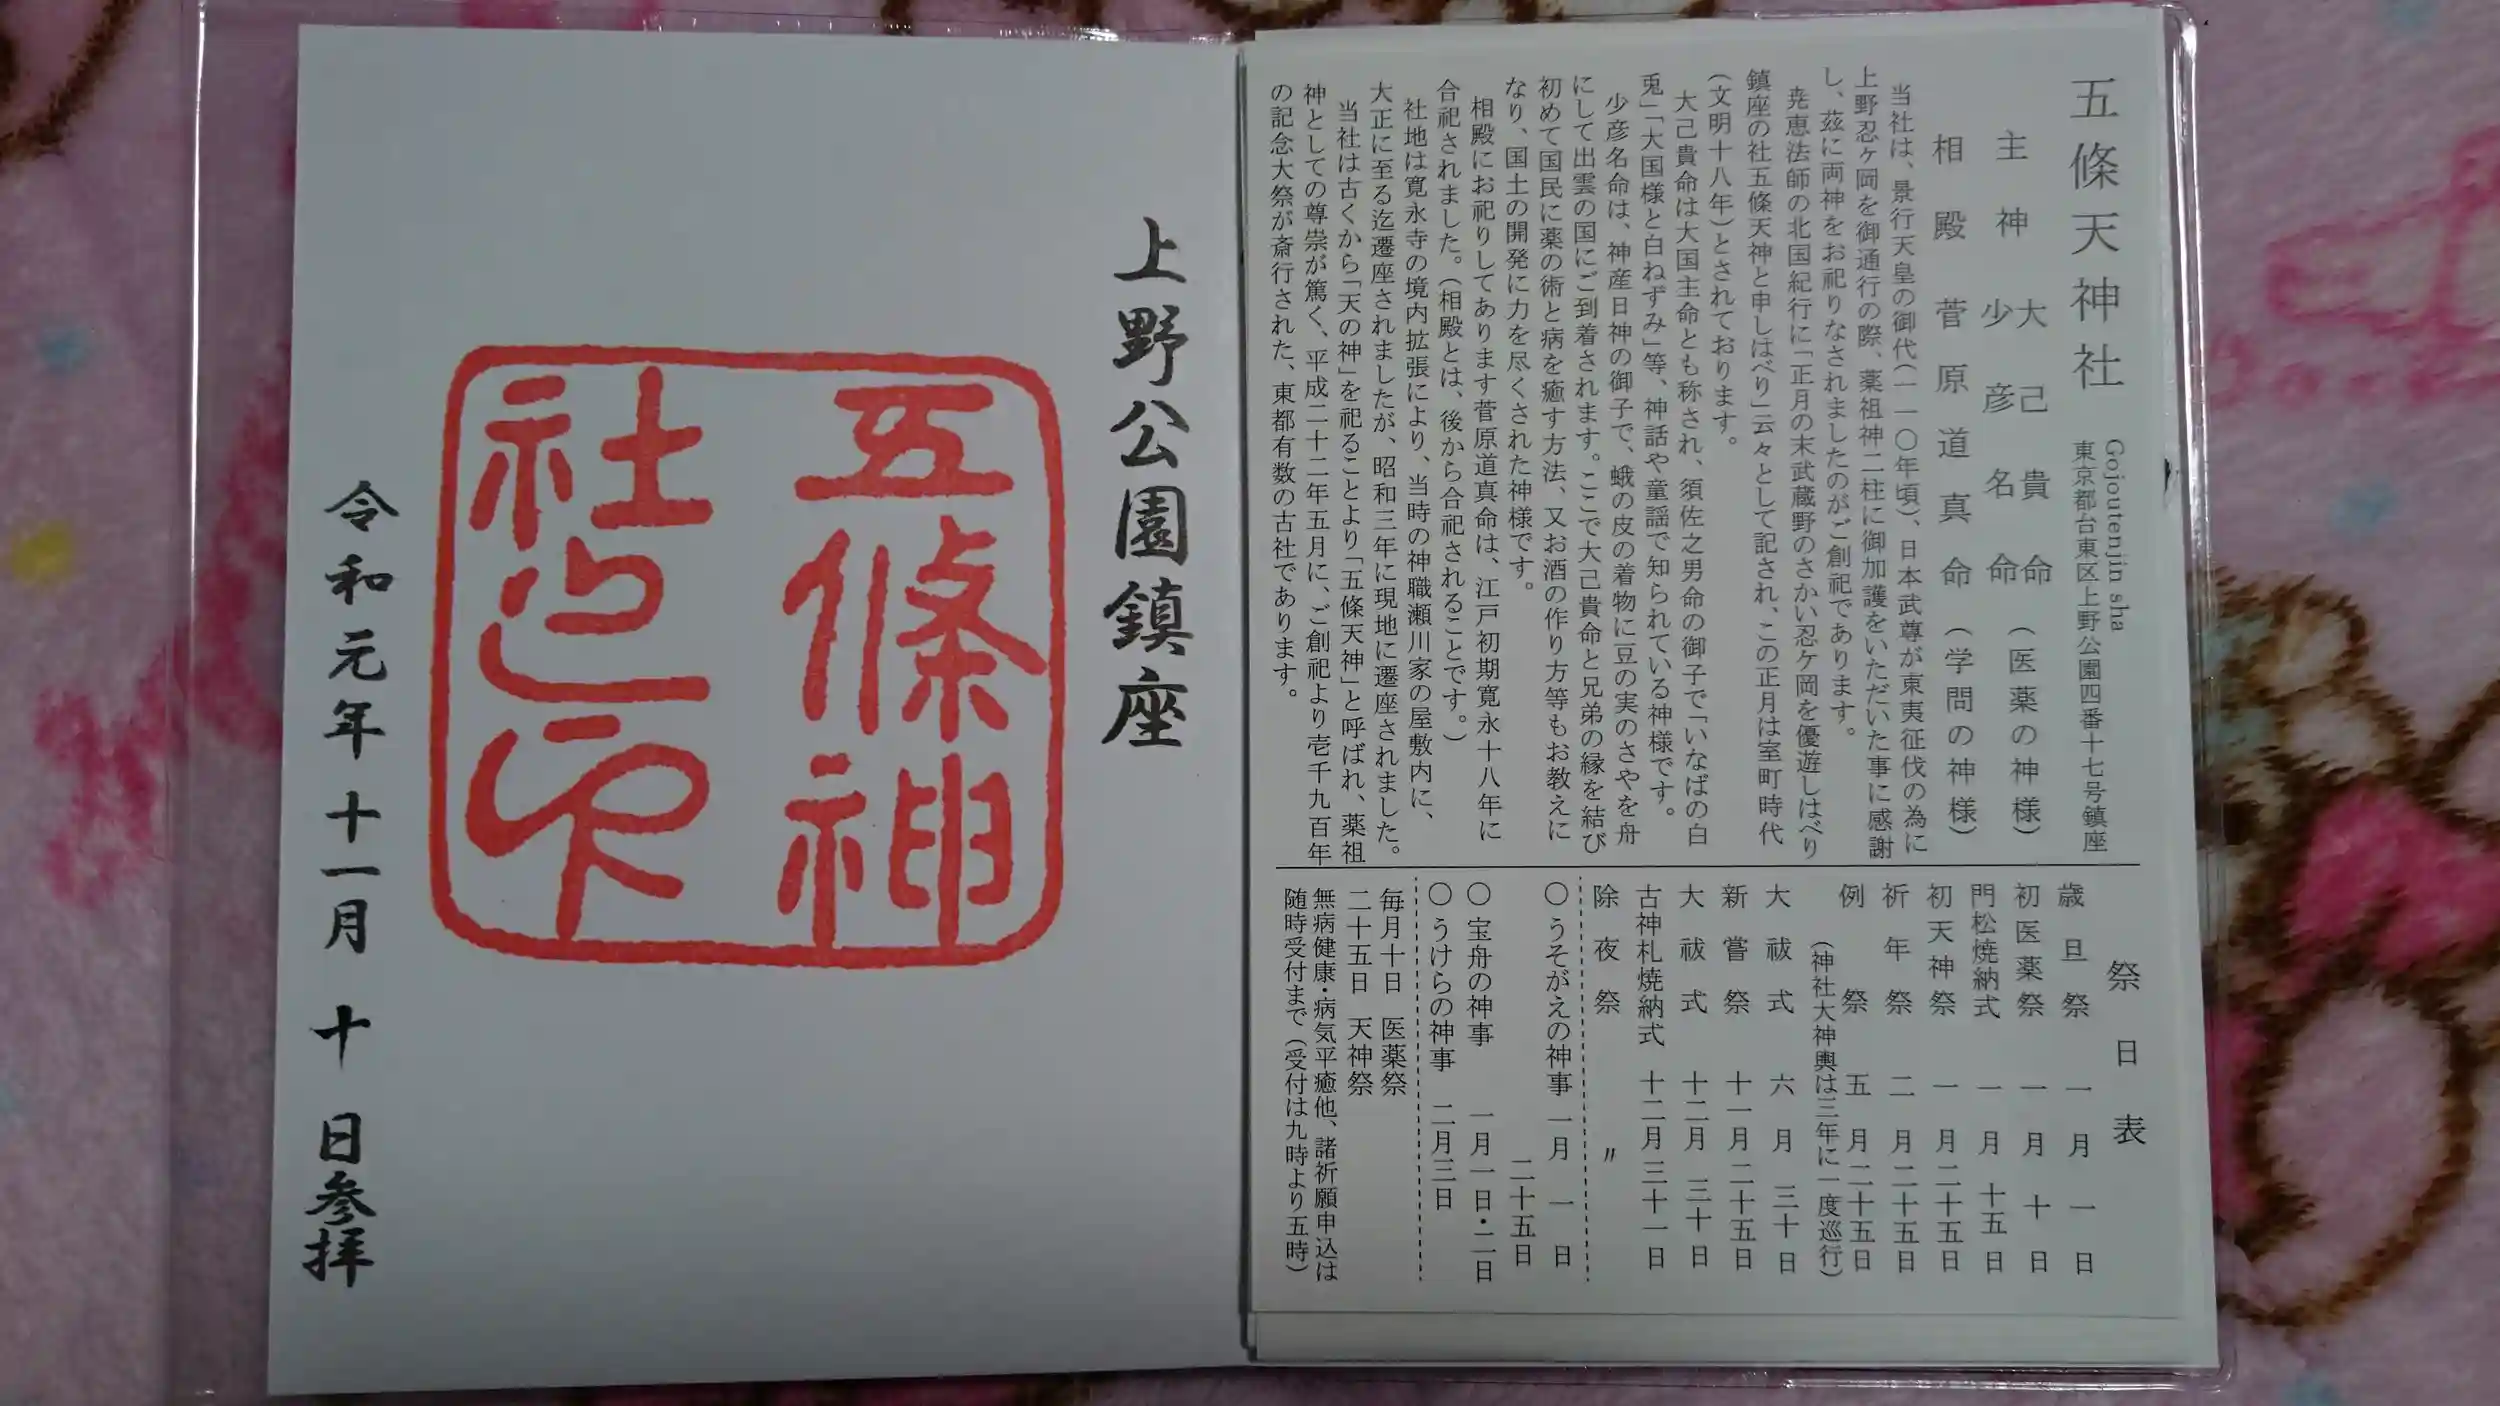 五條天神社
Gojoutenjin sha
東京都台東区上野公園四番十七号鎮座
主神 大己貴命
少彦名命 (医薬の神様)
相殿 菅原道真命 (学問の神様)
当社は、景行天皇の御代(一一〇年頃)、日本武尊が東夷征伐の為に
上野忍ヶ岡を御通行の際、薬祖神二柱に御加護をいただいた事に感謝
し、茲に両神をお祀りなされましたのがご創祀であります。
尭恵法師の北国紀行に「正月の末武蔵野のさかい忍ケ岡を優遊しはべり
鎮座の社五條天神と申しはべり」云々として記され、この正月は室町時代
(文明十八年)とされております。
大己貴命は大国主命とも称され、須佐之男命の御子で「いなばの白
兎」「大国様と白ねずみ」等、神話や童謡で知られている神様です。
少彦名命は、神産日神の御子で、蛾の皮の着物に豆の実のさやを舟
にして出雲の国にご到着されます。ここで大己貴命と兄弟の縁を結び
初めて国民に薬の術と病を癒す方法、又お酒の作り方等もお教えに
なり、国土の開発に力を尽くされた神様です。
相殿にお祀りしてあります菅原道真命は、江戸初期寛永十八年に
合祀されました。(相殿とは、後から合祀されることです。)
社地は寛永寺の境内拡張により、当時の神職瀬川家の屋敷内に、
大正に至る迄遷座されましたが、昭和三年に現地に遷座されました。
当社は古くから「天の神」を祀ることより「五條天神」と呼ばれ、薬祖
神としての尊崇が篤く、平成二十二年五月に、ご創祀より壱千九百年
の記念大祭が斎行された、東都有数の古社であります。
祭日表
歳旦祭 一月一日
初医薬祭 一月十日
門松焼納式 一月十五日
初天神祭 一月二十五日
祈年祭 二月二十五日
例祭 五月二十五日
(神社大神輿は三年に一度巡行)
大祓式 六月三十日
新嘗祭 十一月二十五日
大祓式 十二月三十日
古神札焼納式 十二月三十一日
除夜祭 〃
〇うそがえの神事 一月一日
二十五日
〇宝舟の神事 一月一日・二日
〇うけらの神事 二月三日
毎月十日 医薬祭
二十五日 天神祭
無病健康・病気平癒他、諸祈願申込は
随時受付まで(受付は九時より五時)
上野公園鎮座
五條神
社之印
令和元年十一月十日参拝